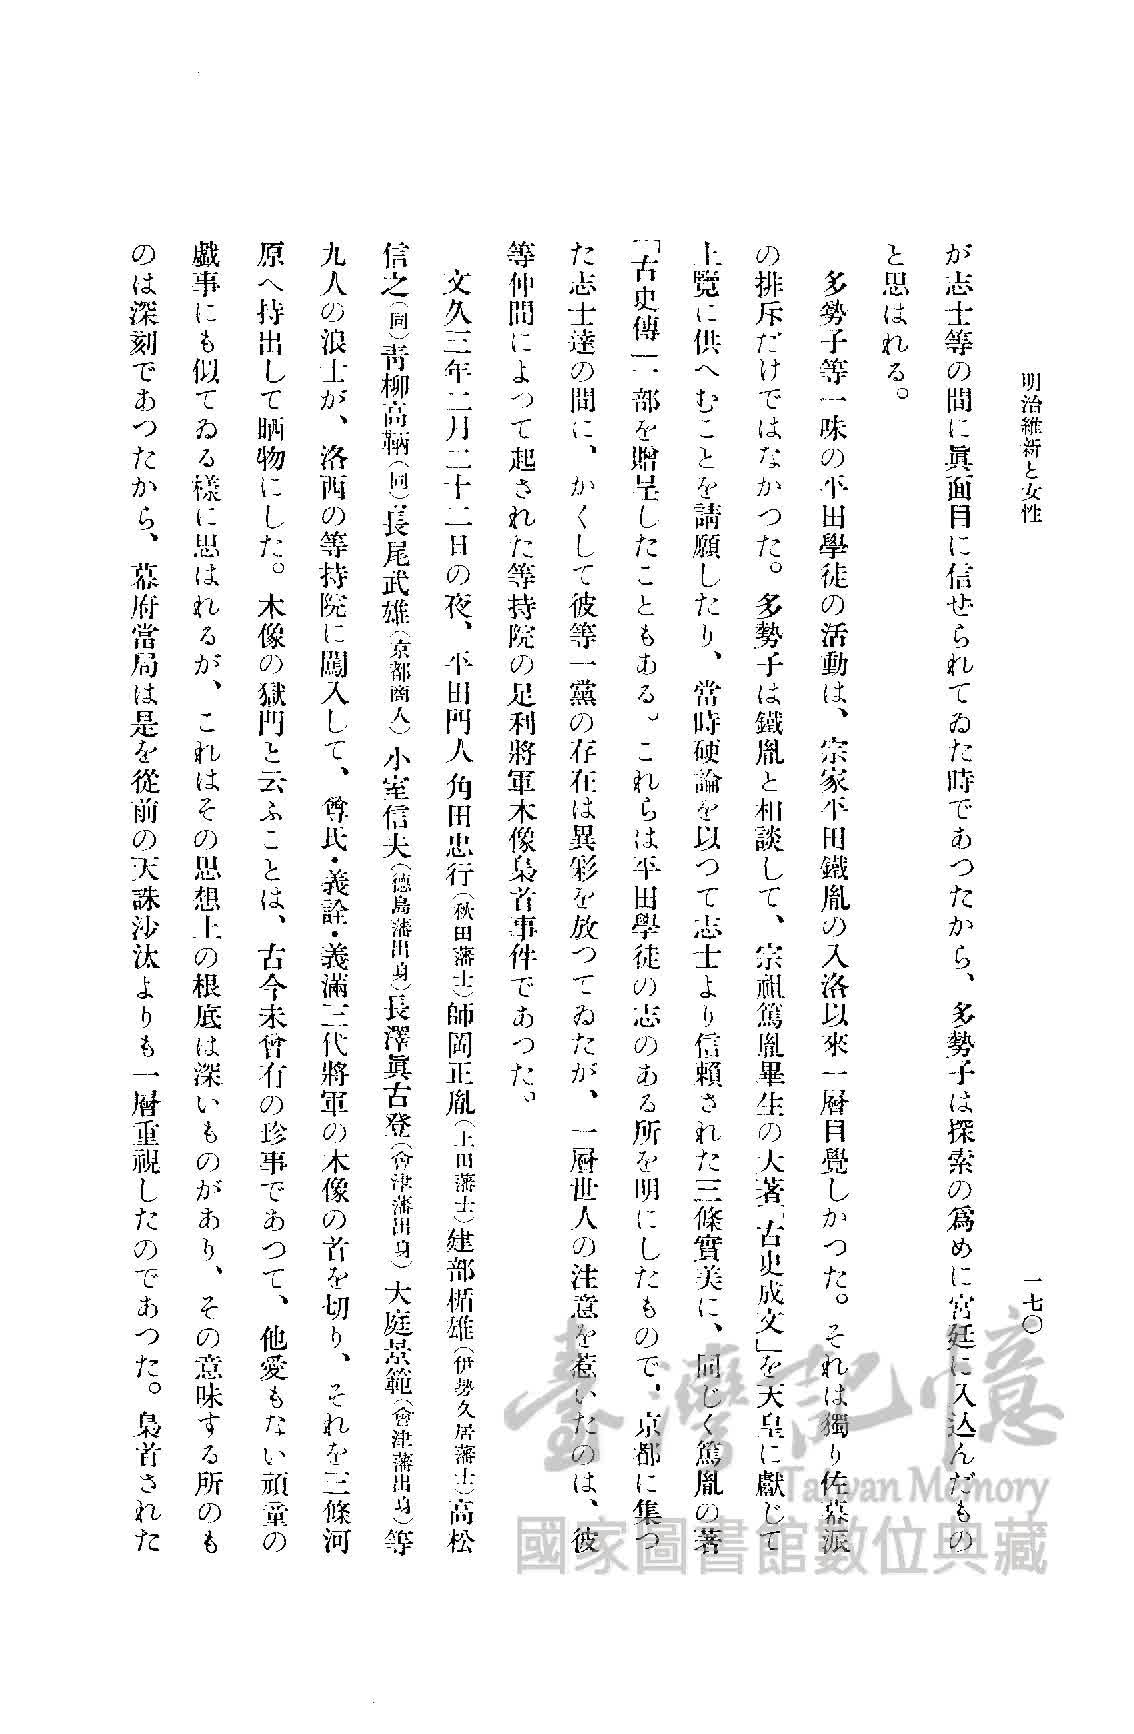 明治維新と女性
一七〇
が志士等の間に眞面目に信せられてゐた時であつたから、多勢子は探索の爲めに宮廷に入込んだもの
と思はれる。
多勢子等一味の平田學徒の活動は、宗家平田鐵胤の入洛以來一層目覺しかつた。それは獨り佐幕派
の排斥だけではなかつた。多勢子は鐵胤と相談して、宗祖篤胤畢生の大著「古史成文」を天皇に獻じて
上覽に供へむことを請願したり、當時硬論を以つて志士より信賴された三條實美に、同じく篤胤の著
「古史傳」一部を贈呈したこともある。これらは平田學徒の志のある所を明にしたもので、京都に集つ
た志士達の間に、かくして彼等一黨の存在は異彩を放つてゐたが、一層世人の注意を惹いたのは、彼
等仲間によつて起された等持院の足利將軍木像梟首事件であつた。
文久三年二月二十二日の夜、平田門人角田忠行(秋田藩士)師岡正胤(上田藩士)建部楯雄(伊勢久居藩士)高松
信之(同)靑柳高鞆(同)長尾武雄(京都商人)小室信夫(德島藩出身)長澤眞古登(會津藩出身)大庭景範(會津藩出身)等
九人の浪士が、洛西の等持院に闖入して、尊氏・義詮・義滿三代將軍の木像の首を切り、それを三條河
原へ持出して晒物にした。木像の獄門と云ふことは、古今未曾有の珍事であつて、他愛もない頑童の
戲事にも似てゐる樣に思はれるが、これはその思想上の根底は深いものがあり、その意味する所のも
のは深刻であつたから、幕府當局は是を從前の天誅沙汰よりも一層重視したのであつた。梟首された
臺灣記憶
Taiwan Memory
國家圖書館數位典藏